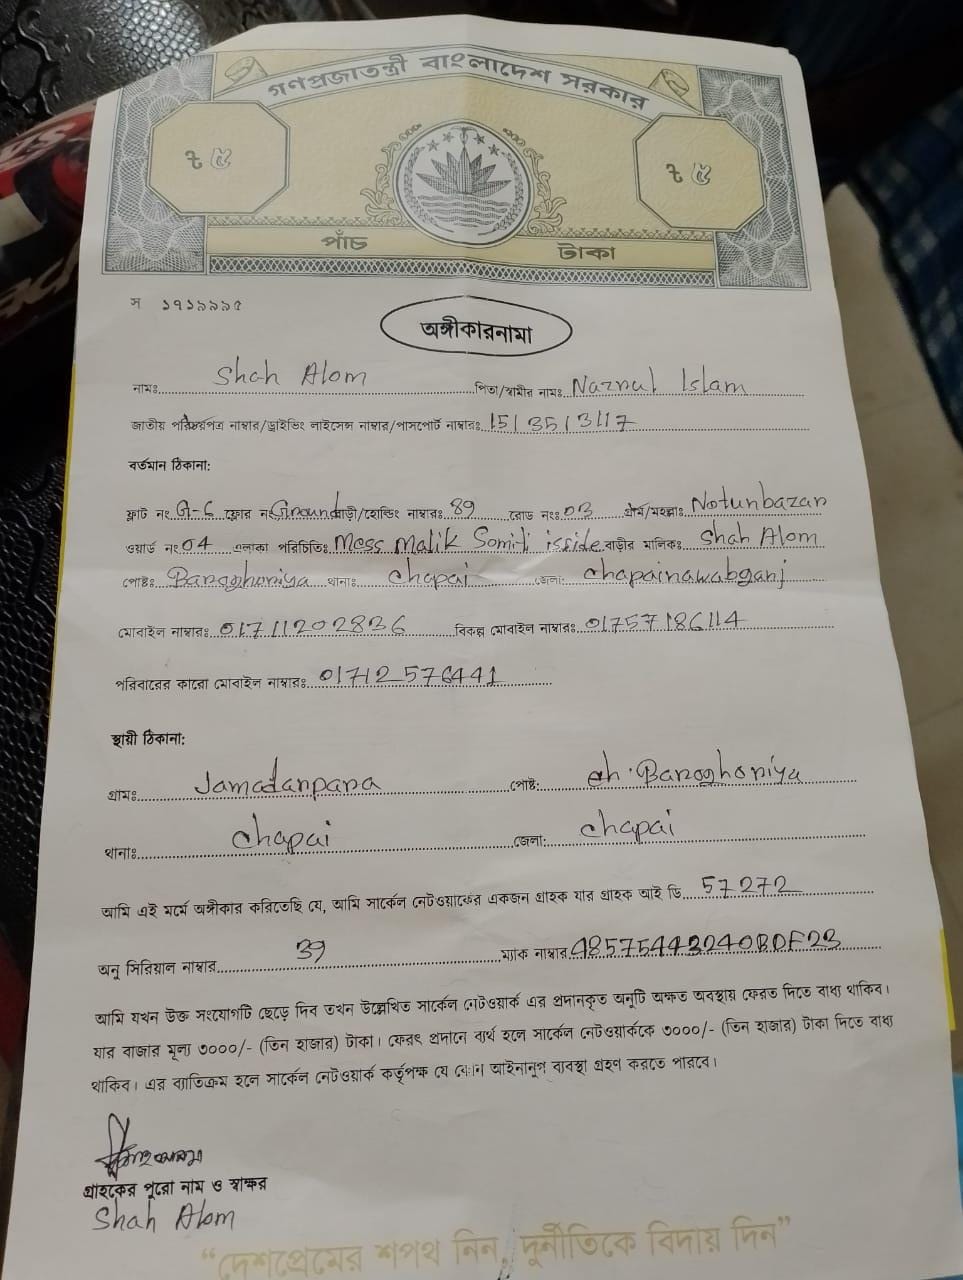 গণপ্রজাতন্ত্রী বাংলাদেশ সরকার
৳ ৫ ৳ ৫
পাঁচ টাকা
স ১৭১৯৯৯৫
অঙ্গীকারনামা
নামঃ Shah Alom পিতা/স্বামীর নামঃ Naznul Islam
জাতীয় পরিচয়পত্র নাম্বার/ড্রাইভিং লাইসেন্স নাম্বার/পাসপোর্ট নাম্বারঃ 1513513117
বর্তমান ঠিকানা:
ফ্লাট নং G-6 ফ্লোর নং Ground বাড়ী/হোল্ডিং নাম্বারঃ 89 রোড নংঃ 03 গ্রাম/মহল্লাঃ Notunbazan
ওয়ার্ড নং 04 এলাকা পরিচিতিঃ Mess Malik Somiti isside বাড়ীর মালিকঃ Shah Alom
পোষ্টঃ Baroghoniya থানাঃ chapai জেলা: chapainawabganj
মোবাইল নাম্বারঃ 01711202826 বিকল্প মোবাইল নাম্বারঃ 01757186114
পরিবারের কারো মোবাইল নাম্বারঃ 01712576441
স্থায়ী ঠিকানা:
গ্রামঃ Jamadanpana পোষ্ট: ch. Baroghoniya
থানাঃ chapai জেলা: chapai
আমি এই মর্মে অঙ্গীকার করিতেছি যে, আমি সার্কেল নেটওয়ার্কের একজন গ্রাহক যার গ্রাহক আই ডি 57272
অনু সিরিয়াল নাম্বার 39 ম্যাক নাম্বার 48575443240BDF23
আমি যখন উক্ত সংযোগটি ছেড়ে দিব তখন উল্লেখিত সার্কেল নেটওয়ার্ক এর প্রদানকৃত অনুটি অক্ষত অবস্থায় ফেরত দিতে বাধ্য থাকিব।
যার বাজার মূল্য ৩০০০/- (তিন হাজার) টাকা। ফেরৎ প্রদানে ব্যর্থ হলে সার্কেল নেটওয়ার্ককে ৩০০০/- (তিন হাজার) টাকা দিতে বাধ্য
থাকিব। এর ব্যাতিক্রম হলে সার্কেল নেটওয়ার্ক কর্তৃপক্ষ যে কোন আইনানুগ ব্যবস্থা গ্রহণ করতে পারবে।
গ্রাহকের পুরো নাম ও স্বাক্ষর
Shah Alom
“দেশপ্রেমের শপথ নিন, দুর্নীতিকে বিদায় দিন”